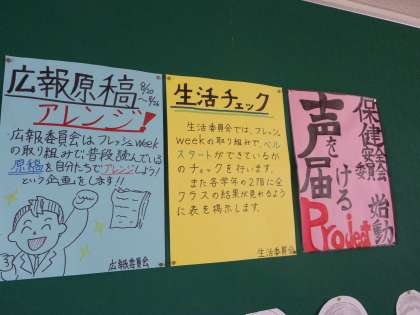 広報原稿 9/20～9/26
アレンジ!
広報委員会はフレッシュweek
の取り組みで、普段読んでいる
原稿を自分たちでアレンジしよう!
という企画をします!!
広報委員会
生活チェック
生活委員会では、フレッシュ
weekの取り組みで、ベル
スタートができているか
のチェックを行います。
また各学年の2階に全
クラスの結果が見れるよう
に表を掲示します。
生活委員会
保健委員会 始動
声を届ける
Project